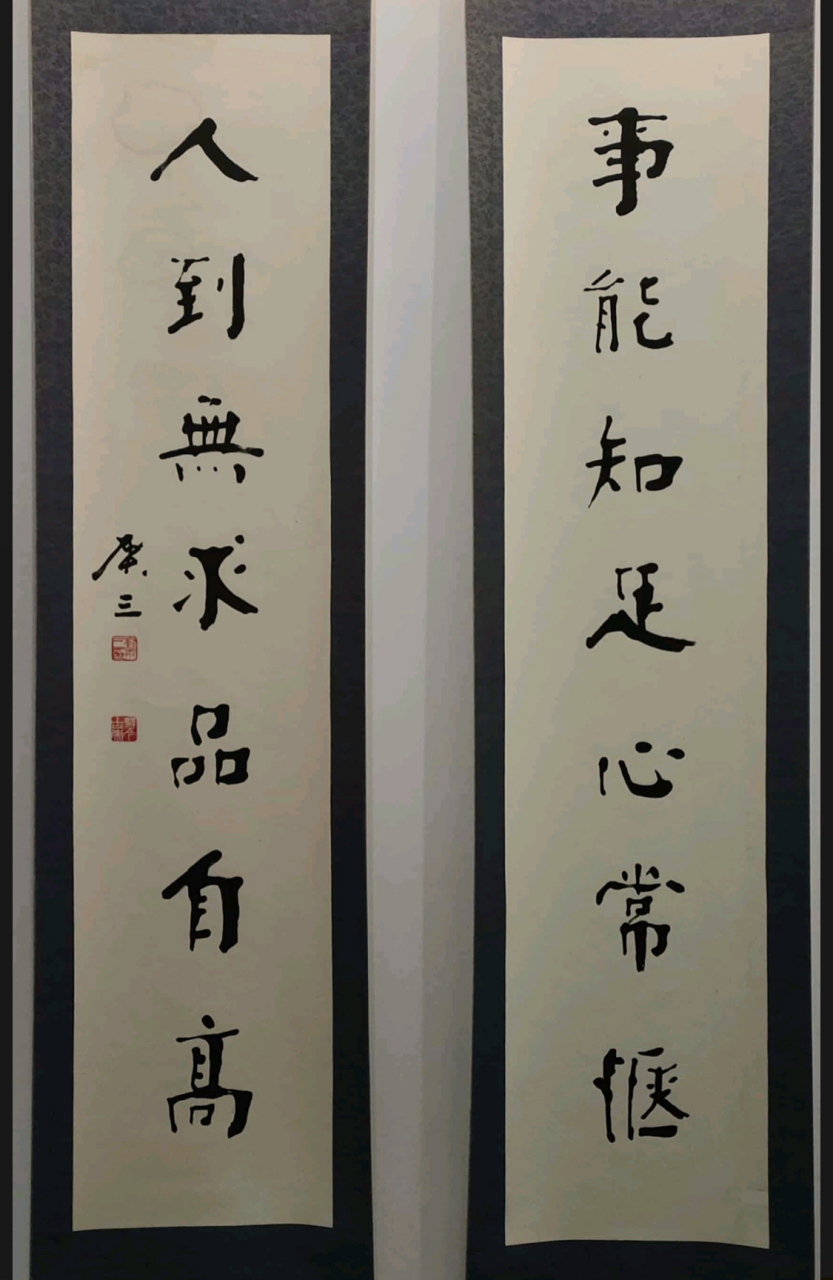 事能知足心常愜
人到無求品自高
三